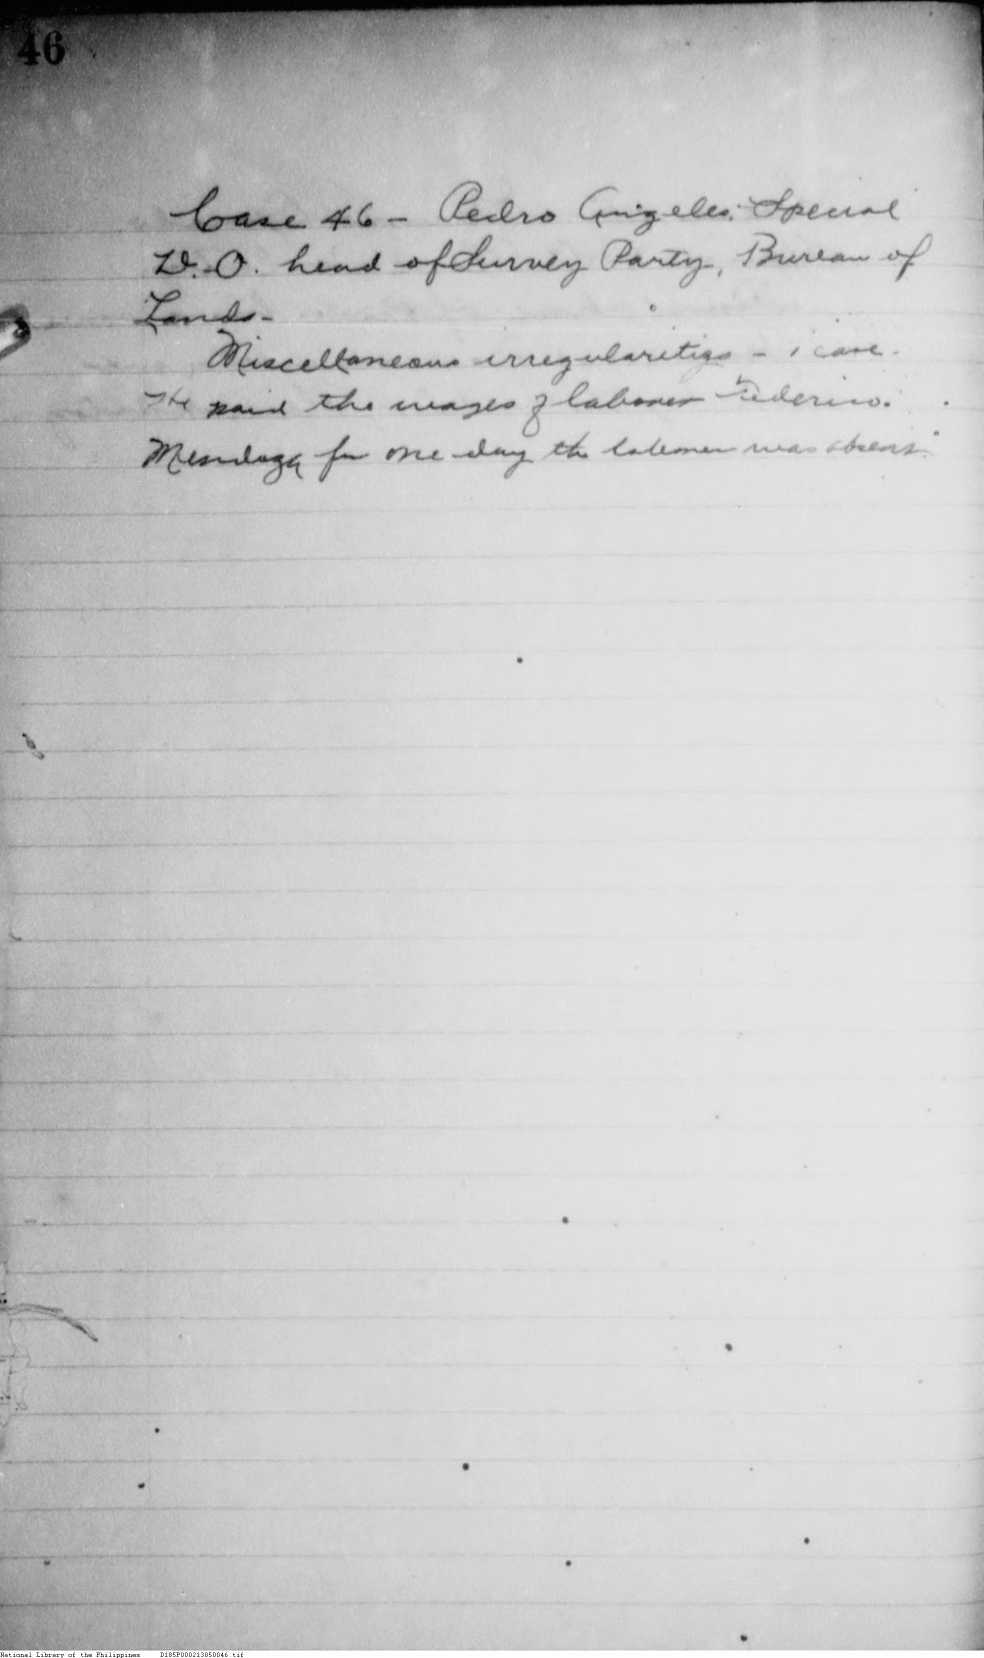 46
Case 46 - Pedro Angeles, Special
D.O. head of Survey Party, Bureau of
Lands -
Miscellaneous irregularities - 1 case.
He paid the wages of laborer Federico
Mendoza for one day the laborer was absent.
National Library of the Philippines D185P000213850046.tif